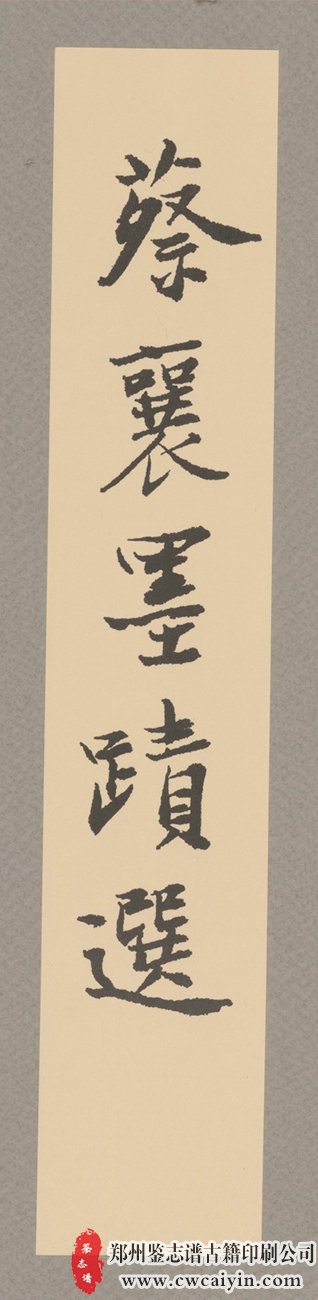 蔡襄墨蹟選
鉴志谱
郑州鉴志谱古籍印刷公司
www.cwcaiyin.com